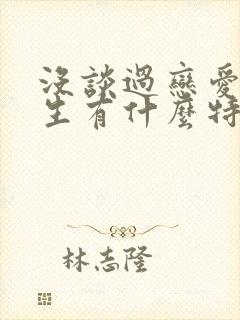 沒談過戀愛
生有什麼特
林志隆